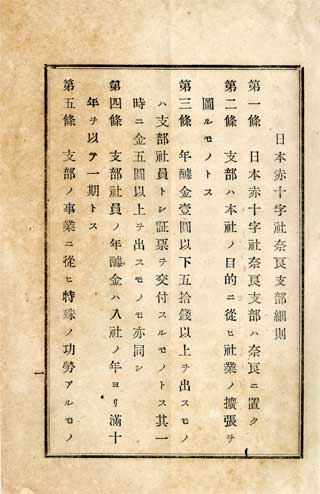 日本赤十字社奈良支部細則
第一條　日本赤十字社奈良支部ハ奈良ニ置ク
第二條　支部ハ本社ノ目的ニ從ヒ社業ノ擴張ヲ
圖ルモノトス
第三條　年醵金壹圓以下五拾錢以上ヲ出スモノ
ハ支部社員トシ証票ヲ交付スルモノトス其一
時ニ金五圓以上ヲ出スモノモ亦同シ
第四條　支部社員ノ年醵金ハ入社ノ年ヨリ滿十
年ヲ以テ一期トス
第五條　支部ノ事業ニ從ヒ特殊ノ功勞アルモノ
一